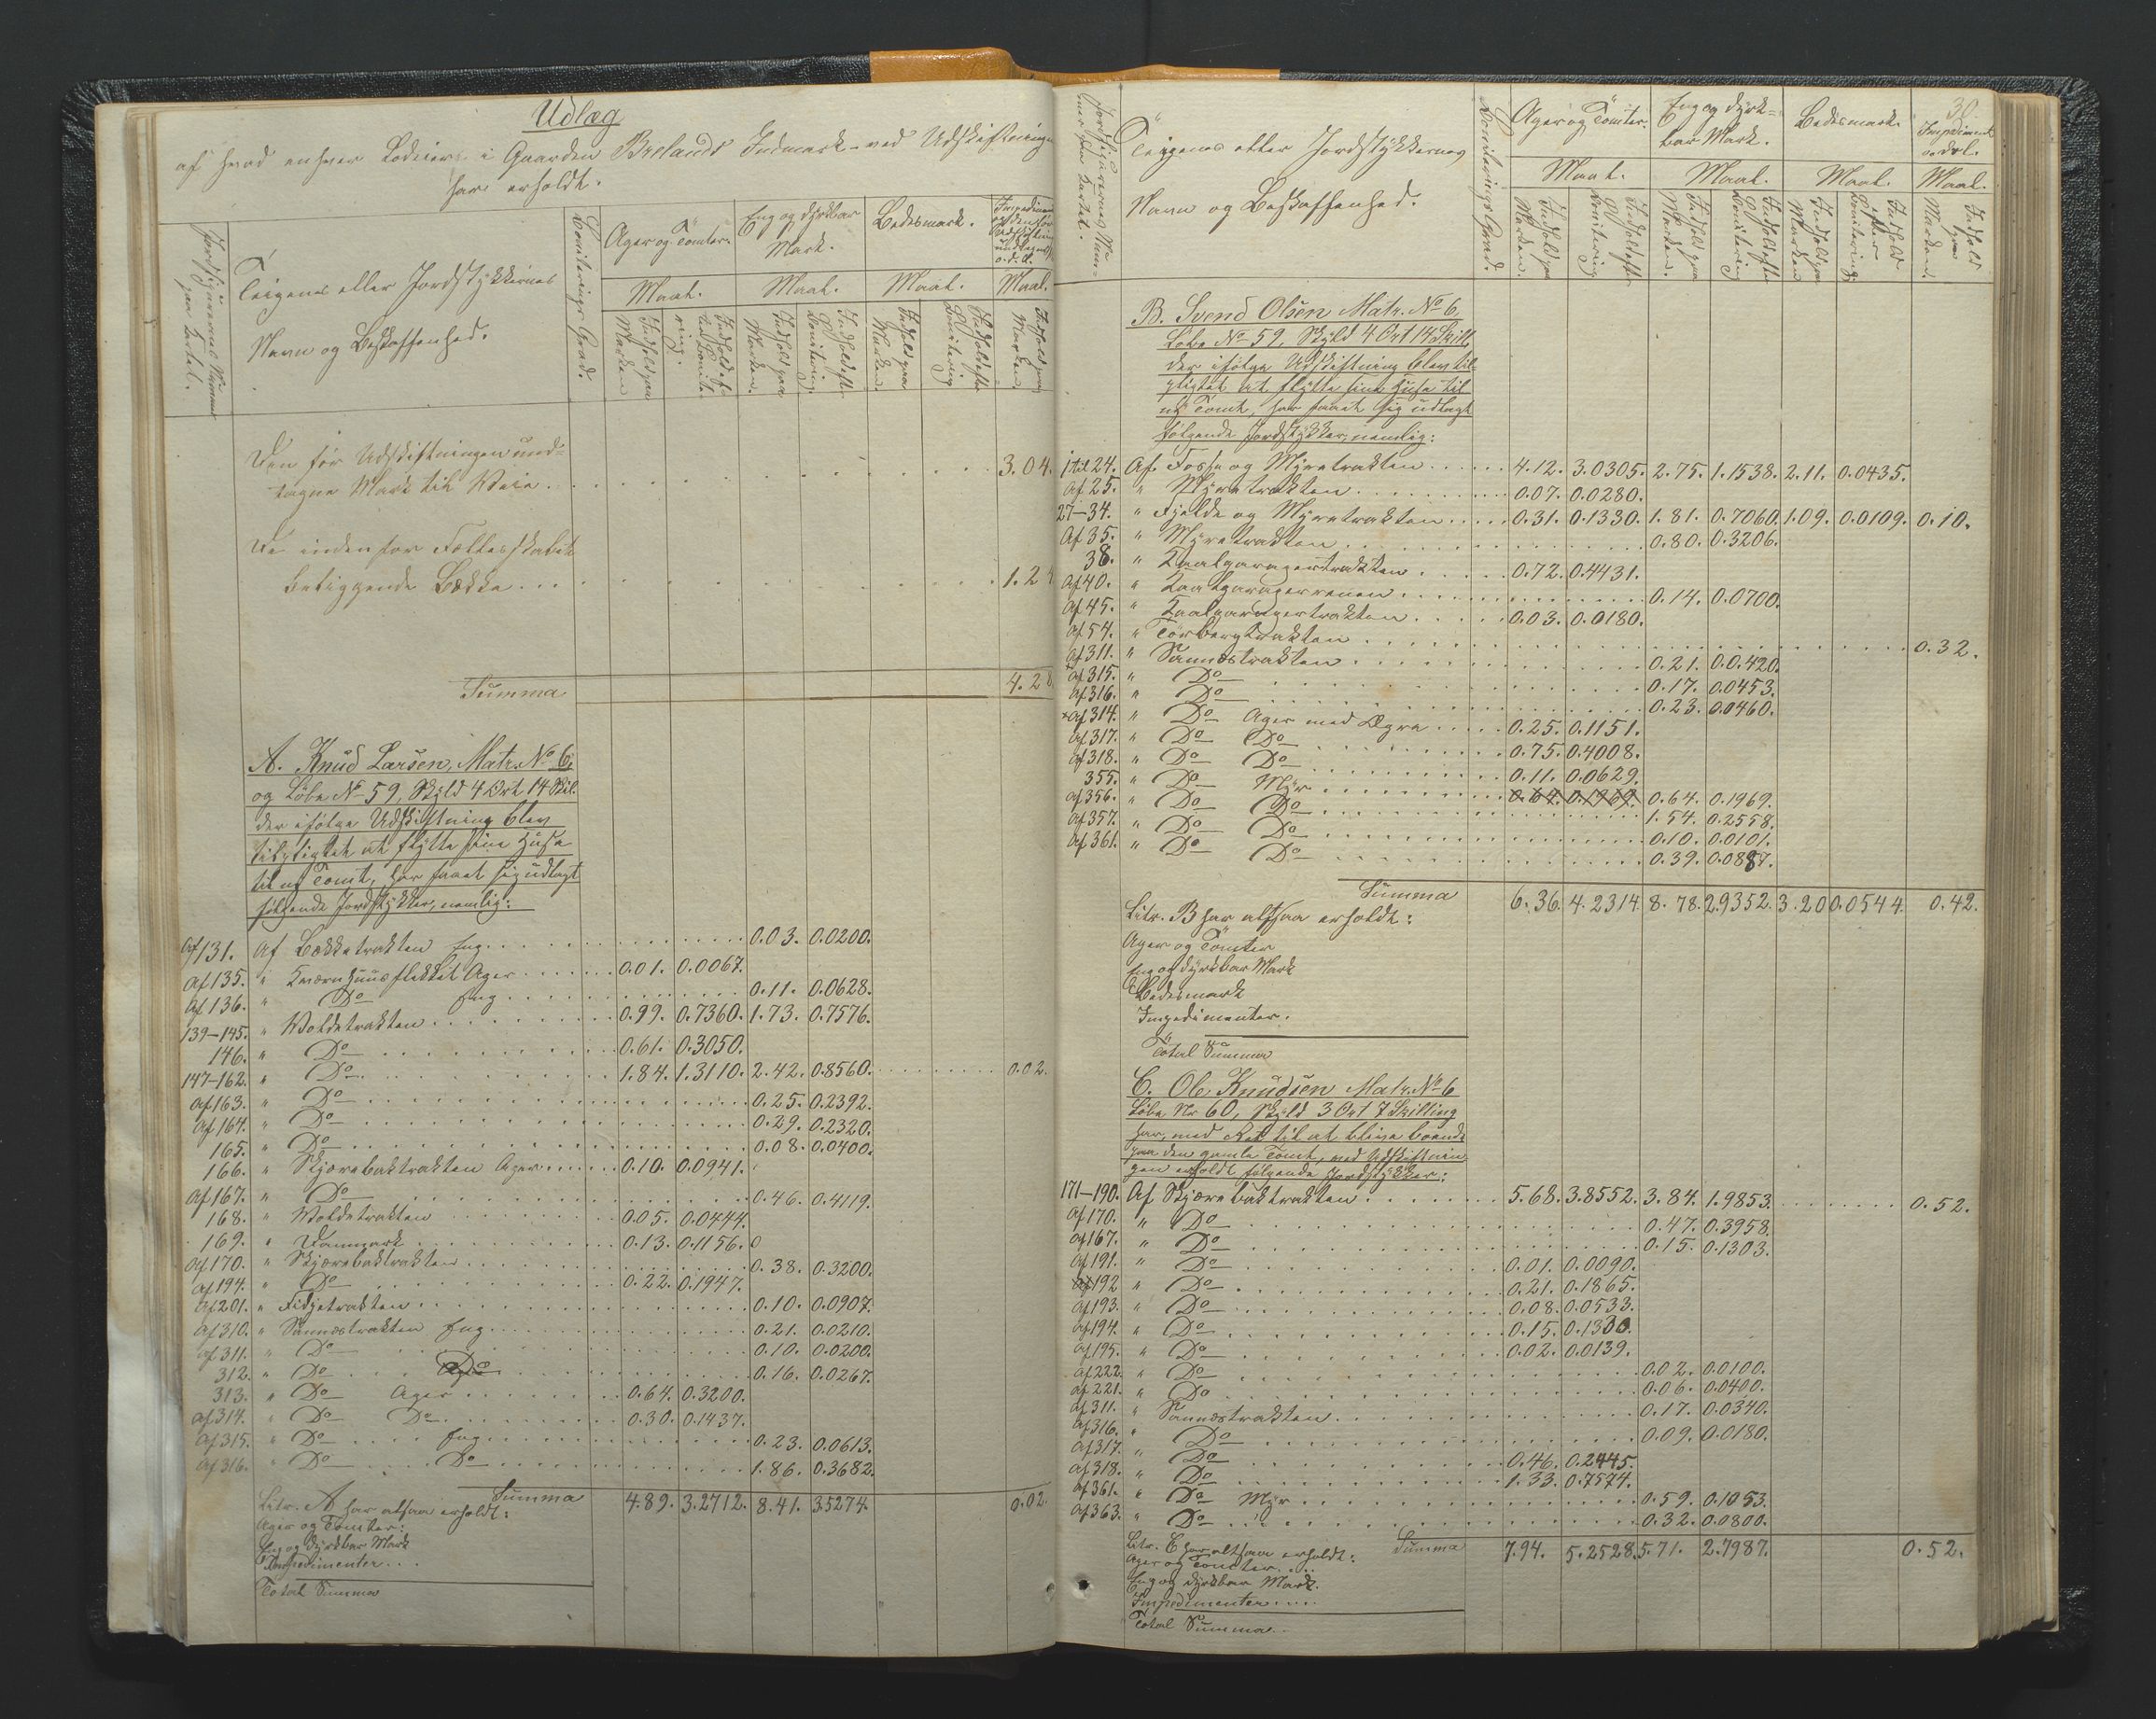 Udlæg
af hvad enhver Lodeier i Gaarden Brelands Indmark ved Udskiftningen
har erholdt.
Jordfigurernes Nummer paa Kartet.
Teigenes eller Jordstykkernes
Navn og Beskaffenhed.
Boniterings Grad.
Ager og Tomter.
Eng og dyrkbar
Mark.
Bedesmark.
Maal. Maal. Maal. Maal.
Indhold paa Marken
Indhold efter Bonitering.
Indhold paa Marken.
Indhold efter Bonitering.
Indhold paa Marken.
Indhold efter Bonitering
Indhold paa Marken.
Den før Udskiftningen und-
tagne Mark til Veie . . . 3.04.
De indenfor Fællesskabet
beliggende Bække . . . 1.24
Summa 4.28
A. Knud Larsen, Matr. No 6,
og Løbe No 59, Skyld 4 Ort 14 Skil.
der ifølge Udskiftning blev
tilpligtet at flytte sine Huse
til ny Tomt, har faaet sig udlagt
følgende Jordstykker, nemlig:
Af 131. Af Bækketrakten Eng . . . 0.03. 0.0200.
Af 135. " Kværnhuusflekket Ager . . . 0.01. 0.0067.
Af 136. " Do Eng . . . 0.11. 0.0628.
139-145. " Voldetrakten . . . 0.99. 0.7360. 1.73. 0.7576.
146. " Do . . . 0.61. 0.3050.
147-162. " Do . . . 1.84. 1.3110. 2.42. 0.8560. . . . 0.02.
Af 163. " Do . . . 0.25. 0.2392.
Af 164. " Do . . . 0.29. 0.2320.
165. " Do . . . 0.08. 0.0400.
166. " Skjærebaktrakten Ager . . . 0.10. 0.0941.
Af 167. " Do . . . 0.46. 0.4119.
168. " Voldetrakten . . . 0.05. 0.0444.
169. " Danmark . . . 0.13. 0.1156. 0
Af 170. " Skjærebaktrakten . . . 0.38. 0.3200.
Af 194. " Do . . . 0.22. 0.1947.
Af 201. " Fidjetrakten . . . 0.10. 0.0907.
Af 310. " Sannæstrakten Eng . . . 0.21. 0.0210.
Af 311. " Do . . . 0.10. 0.0200.
312. " Do . . . Do . . . 0.16. 0.0267.
313. " Do Ager . . . 0.64. 0.3200.
Af 314. " Do Do . . . 0.30. 0.1437.
Af 315. " Do . . . Eng . . . 0.23. 0.0613.
Af 316. " Do . . . Do . . . 1.86. 0.3682.
Summa 4.89. 3.2712. 8.41. 3.5274. 0.02.
Litr. A har altsaa erholdt:
Ager og Tomter:
Eng og dyrkbar Mark
Impedimenter . . .
Total Summa
30.
Jordfigurernes Nummer paa Kartet.
Teigenes eller Jordstykkernes
Navn og Beskaffenhed.
Boniterings Grad.
Ager og Tomter.
Eng og dyrk-
bar Mark.
Bedesmark.
Impediment
o. dsl.
Maal. Maal. Maal. Maal.
Indhold paa Marken.
Indhold efter Bonitering
Indhold paa Marken.
Indhold efter Bonitering
Indhold paa Marken
Indhold efter Bonitering
Indhold paa Marken.
B. Svend Olsen Matr. No 6,
Løbe No 59, Skyld 4 Ort 14 Skill.
der ifølge Udskiftning blev til-
pligtet at flytte sine Huse til
ny Tomt, har faaet sig udlagt
følgende Jordstykker, nemlig:
1 til 24. Af Fosse og Myretrakten . . . 4.12. 3.0305. 2.75. 1.1538. 2.11. 0.0435.
Af 25. " Myretrakten . . . 0.07. 0.0280.
27-34. " Fjelde og Myretrakten . . . 0.31. 0.1330. 1.81. 0.7060. 1.09. 0.0109. 0.10.
Af 35. " Myretrakten . . . 0.80. 0.3206.
38. " Kaalgaragertrakten . . . 0.72. 0.4431.
Af 40. " Kaalgaragerreenen . . . 0.14. 0.0700.
Af 45. " Kaalgaragertrakten . . . 0.03. 0.0180.
Af 54. " Torbergtrakten . . . 0.32.
Af 311. " Sannæstrakten . . . 0.21. 0.0.420.
Af 315. " Do . . . 0.17. 0.0453.
Af 316. " Do . . . 0.23. 0.0460.
Af 314. " Do Ager med Agre . . . 0.25. 0.1151.
Af 317. " Do Do . . . 0.75. 0.4008.
Af 318. " Do Do . . . 0.11. 0.0629.
355. " Do Myr . . . 0.64. 0.1969. 0.64. 0.1969.
Af 356. " Do Do . . . 1.54. 0.2558.
Af 357. " Do Do . . . 0.10. 0.0101.
Af 361. " Do Do . . . 0.39. 0.0887.
Summa 6.36. 4.2314. 8.78. 2.9352. 3.20 0.0544. 0.42.
Litr. B har altsaa erholdt:
Ager og Tomter
Eng og dyrkbar Mark
Bedesmark
Impedimenter.
Total Summa
C. Ole Knudsen Matr. No 6
Løbe Nr 60, Skyld 3 Ort 7 Skilling
har, med Ret til at blive boende
paa den gamle Tomt, ved Udskiftnin
gen erholdt følgende Jordstykker:
171-190. Af Skjærebaktrakten . . . 5.68. 3.8552. 3.84. 1.9853. . . . 0.52.
Af 170. " Do . . . 0.47. 0.3958.
Af 167. " Do . . . 0.15. 0.1303.
Af 191. " Do . . . 0.01. 0.0090.
Af 192 " Do . . . 0.21. 0.1865.
Af 193. " Do . . . 0.08. 0.0533.
Af 194. " Do . . . 0.15. 0.1330.
Af 195. " Do . . . 0.02. 0.0139.
Af 222. " Do . . . 0.02. 0.0100.
Af 221. " Do . . . 0.06. 0.0400.
Af 311. " Sannæstrakten . . . 0.17. 0.0340.
Af 316. " Do . . . 0.09. 0.0180.
Af 317. " Do . . . 0.46. 0.2445.
Af 318. " Do . . . 1.33. 0.7574.
Af 361. " Do Myr . . . 0.59. 0.1053.
Af 363. " Do . . . 0.32. 0.0800.
Summa 7.94. 5.2528. 5.71. 2.7987. 0.52.
Litr. C har altsaa erholdt:
Ager og Tomter . . .
Eng og dyrkbar Mark.
Impedimenter . . . .
Total Summa . .